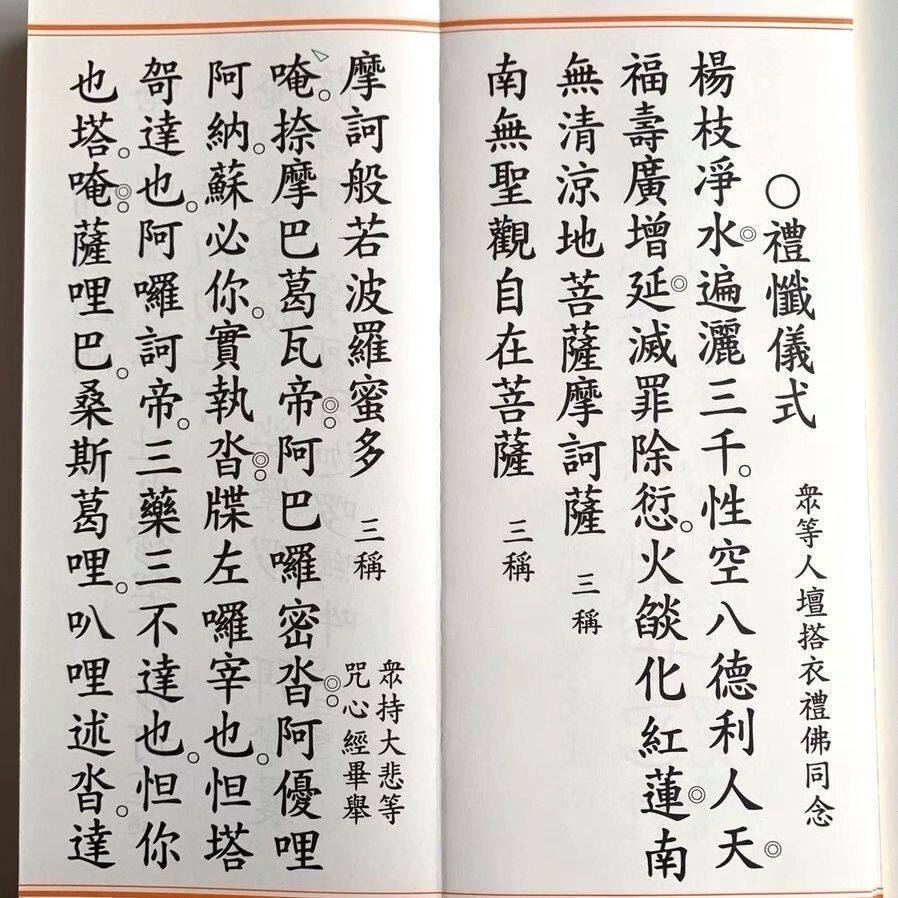 ○禮懺儀式
衆等人壇搭衣禮佛同念
楊枝淨水遍灑三千性空八德利人天
福壽廣增延滅罪除愆火燄化紅蓮南
無清涼地菩薩摩訶薩 三稱
南無聖觀自在菩薩 三稱
摩訶般若波羅蜜多 三稱
衆持大悲等
咒心經畢舉
唵捺摩巴葛瓦帝阿巴囉密沓阿優哩
阿納蘇必你實執沓牒左囉宰也怛塔
哿達也阿囉訶帝三藥三不達也怛你
也塔唵薩哩巴桑斯葛哩叭哩述沓達